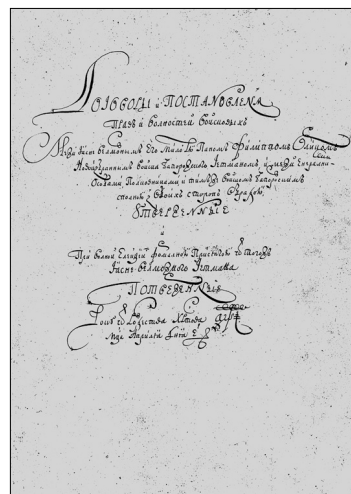 ДОГОВОРЫ и ПОСТАНОВЛЕНѦ
Правъ и Волностей Войсковыхъ
Межи Ясне велможнымъ Его Мил: Паномъ Филиппомъ Орликомъ
Новоизбраннымъ Войска Запорозкого Гетманомъ, и межи Енералними
Особами, Полковниками и тимжъ Войскомъ Запорозскимъ
з обоихъ сторонъ Обрадою,
УТВЕРЖЕННЫЕ
и
При волной Елекцій Фомалною Присягою ѿ тогожъ
Ясне велможного Гетмана
ПОТВЕРЖЕННЫЕ
Року ѿ Рождества Христова
Мця Априля Дня Е